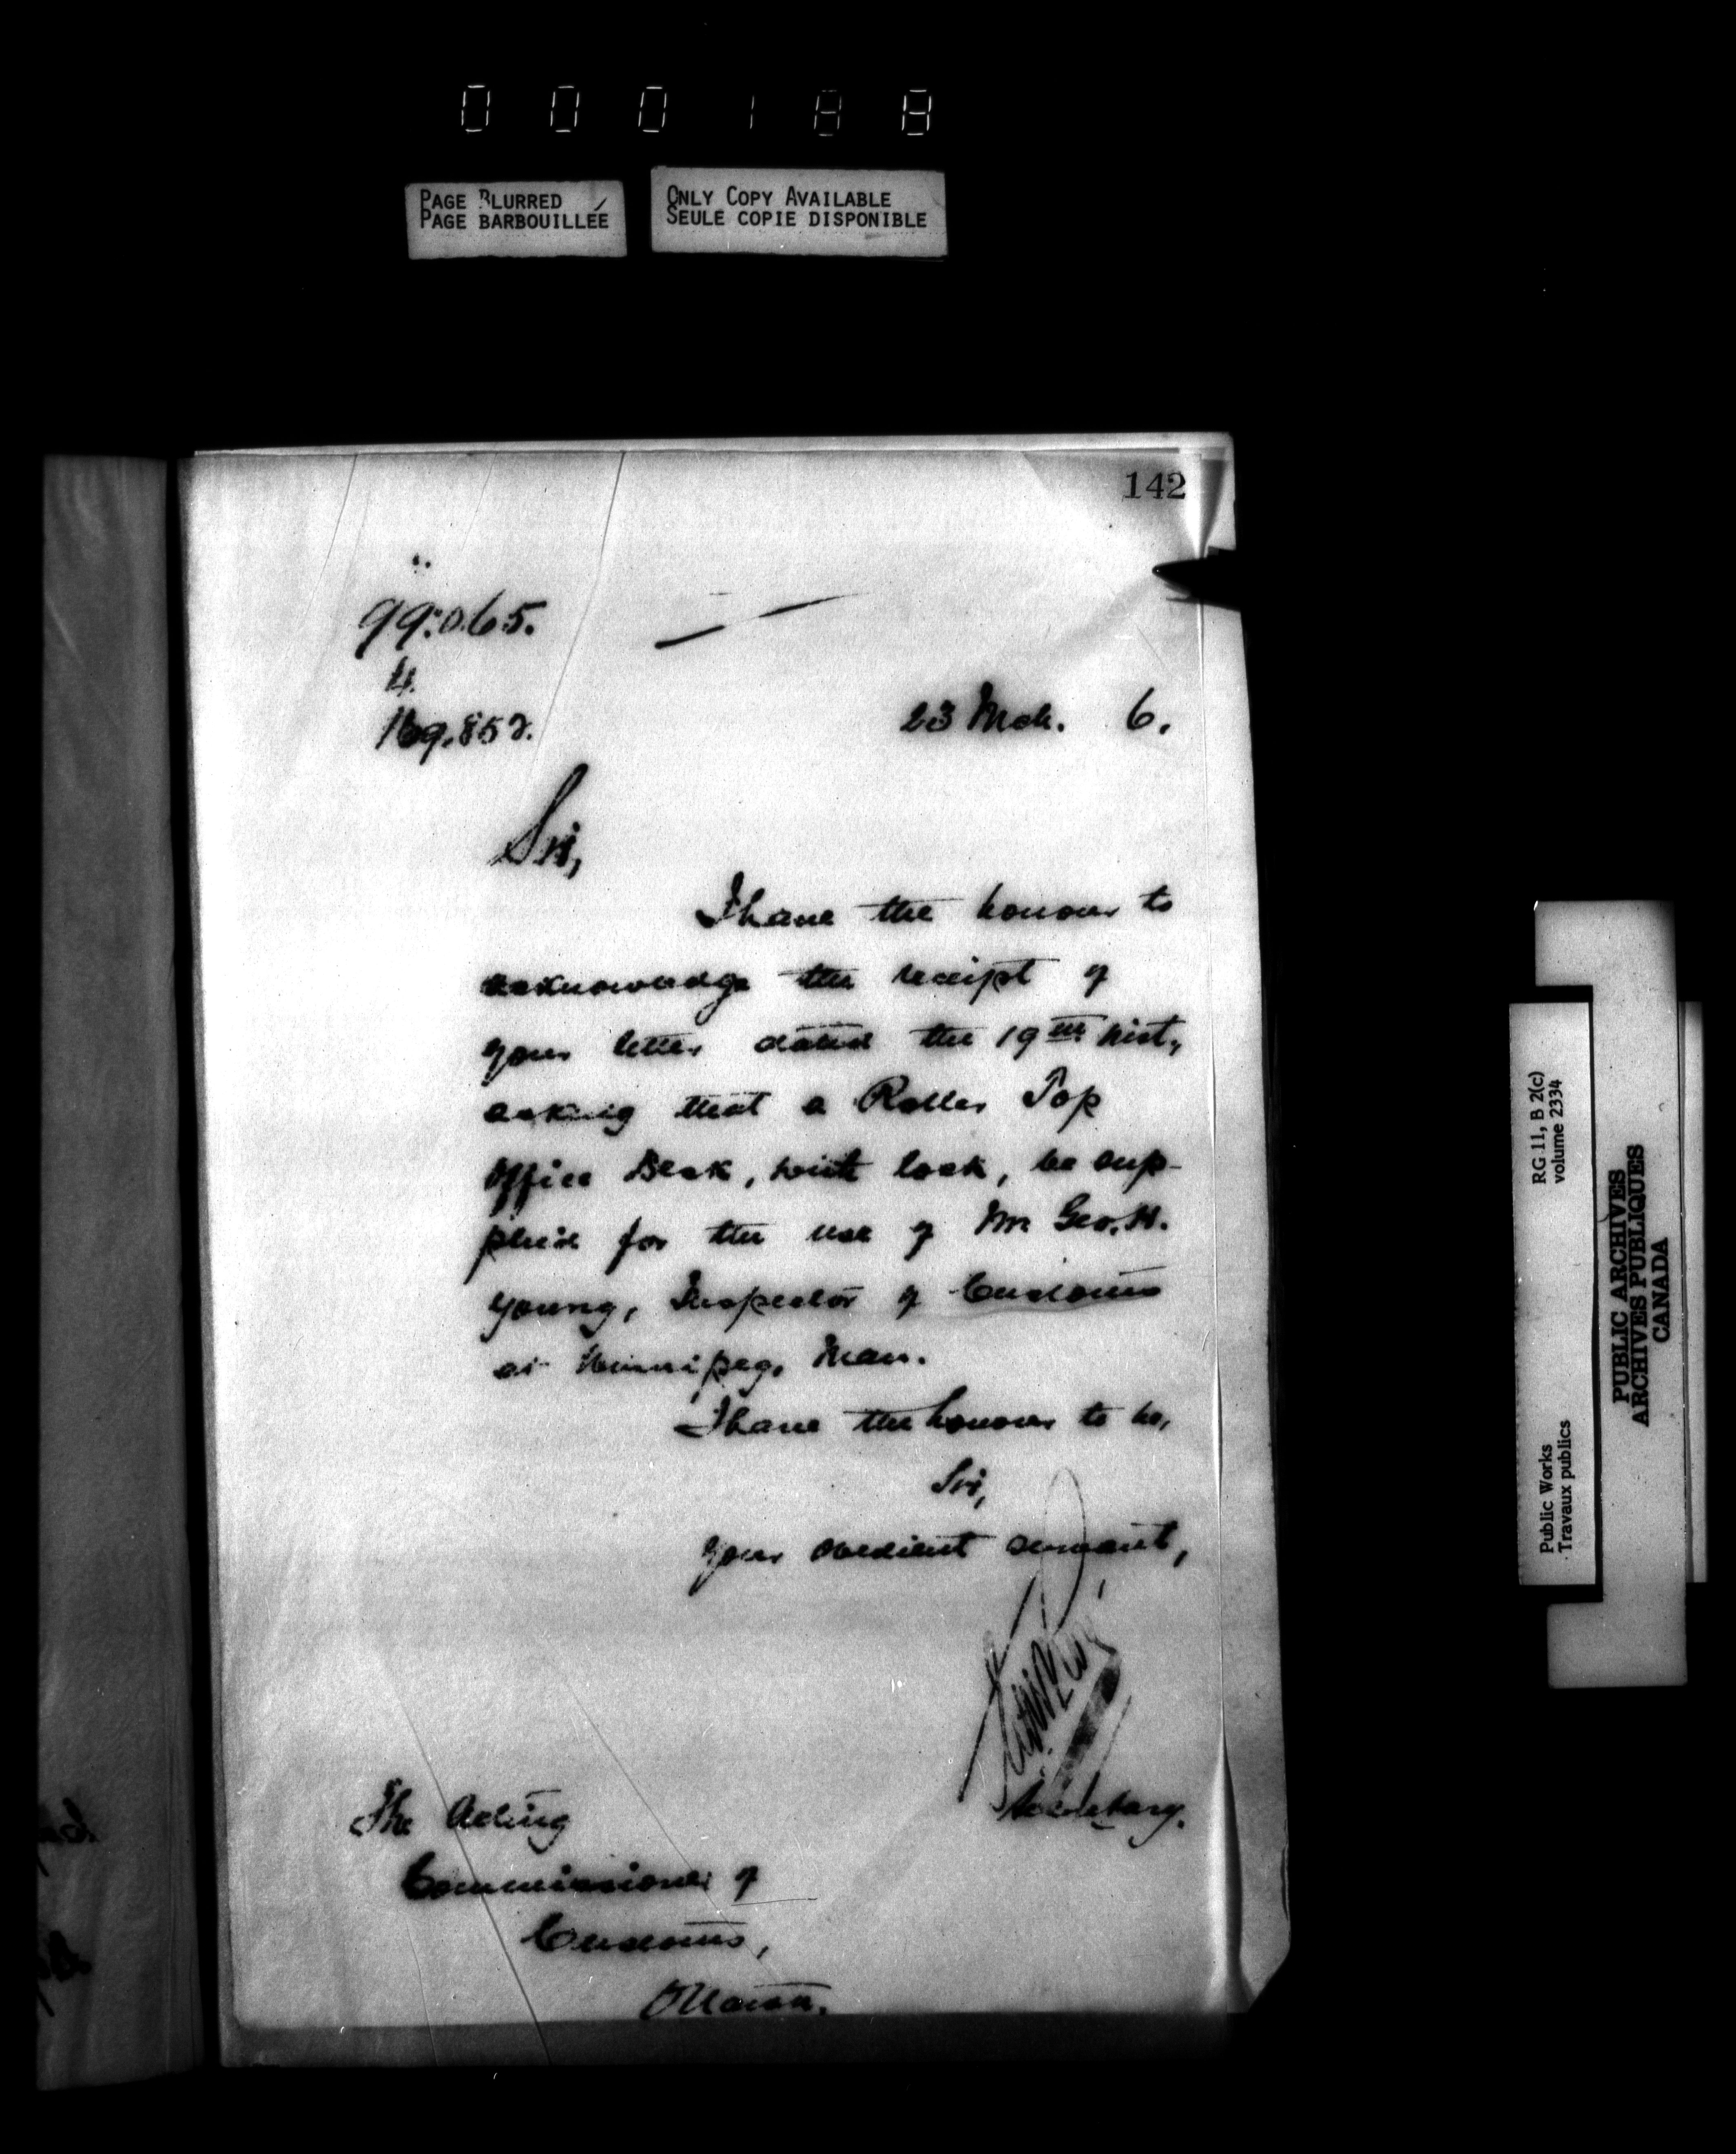 000188
PAGE BLURRED
PAGE BARBOUILLÉE
ONLY COPY AVAILABLE
SEULE COPIE DISPONIBLE
142
99.065.
169,852.
23 Mch. 6.
Sir,
I have the honour to
acknowledge the receipt of
your letter dated the 19th inst,
asking that a Roller Top
Office Desk, with lock, be sup-
plied for the use of Mr Geo. H.
Young, Inspector of Customs
at Winnipeg, Man.
I have the honour to be,
Sir,
Your obedient servant,
Secretary.
The Acting
Commissioner of
Customs,
Ottawa.
RG 11, B 2(c)
volume 2334
Public Works
Travaux publics
PUBLIC ARCHIVES
ARCHIVES PUBLIQUES
CANADA